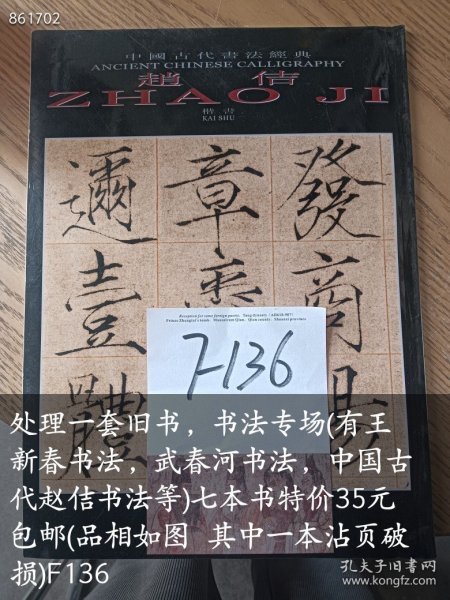 861702
中國古代書法經典
ANCIENT CHINESE CALLIGRAPHY
趙佶
ZHAO JI
楷書
KAI SHU
發商
章
邇壹體
Reception for some foreign guests. Tang dynasty
F136
处理一套旧书，书法专场(有王
新春书法，武春河书法，中国古
代赵佶书法等)七本书特价35元
包邮(品相如图 其中一本沾页破
损)F136
孔夫子旧书网
www.kongfz.com